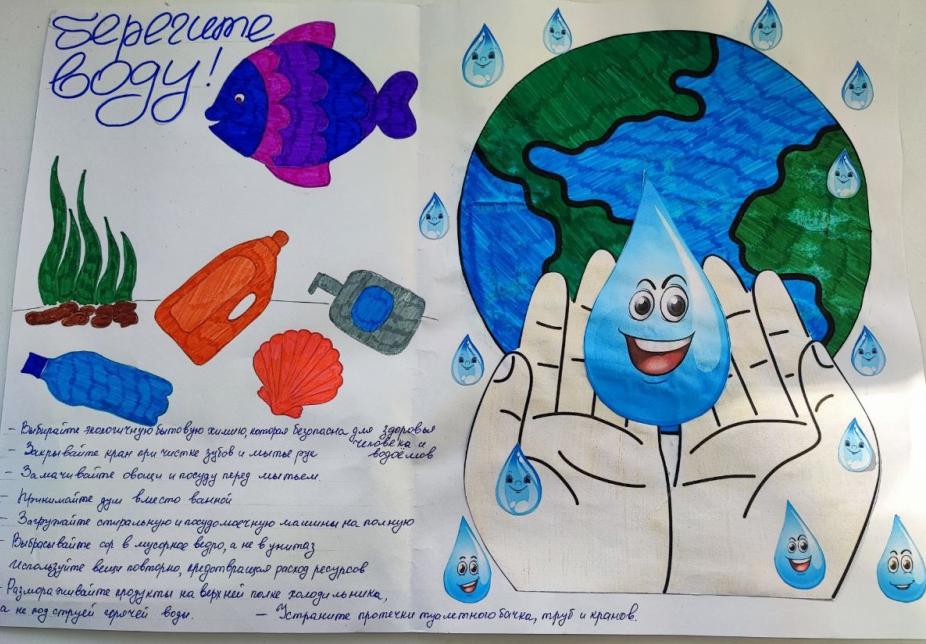 Берегите
воду!
- Выбирайте экологичную бытовую химию, которая безопасна для здоровья
человека и
водоёмов
- Закрывайте кран при чистке зубов и мытье рук
- Замачивайте овощи и посуду перед мытьем.
- Принимайте душ вместо ванной
- Загружайте стиральную и посудомоечную машины на полную
- Выбрасывайте сор в мусорное ведро, а не в унитаз
Используйте вещи повторно, предотвращая расход ресурсов
- Размораживайте продукты на верхней полке холодильника,
а не под струей горячей воды.
- Устраните протечки туалетного бачка, труб и кранов.